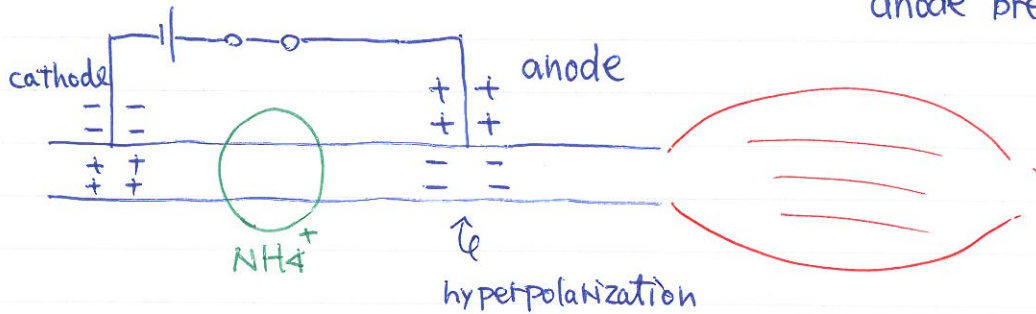 anode pre
cathode
anode
NH4+
hyperpolarization